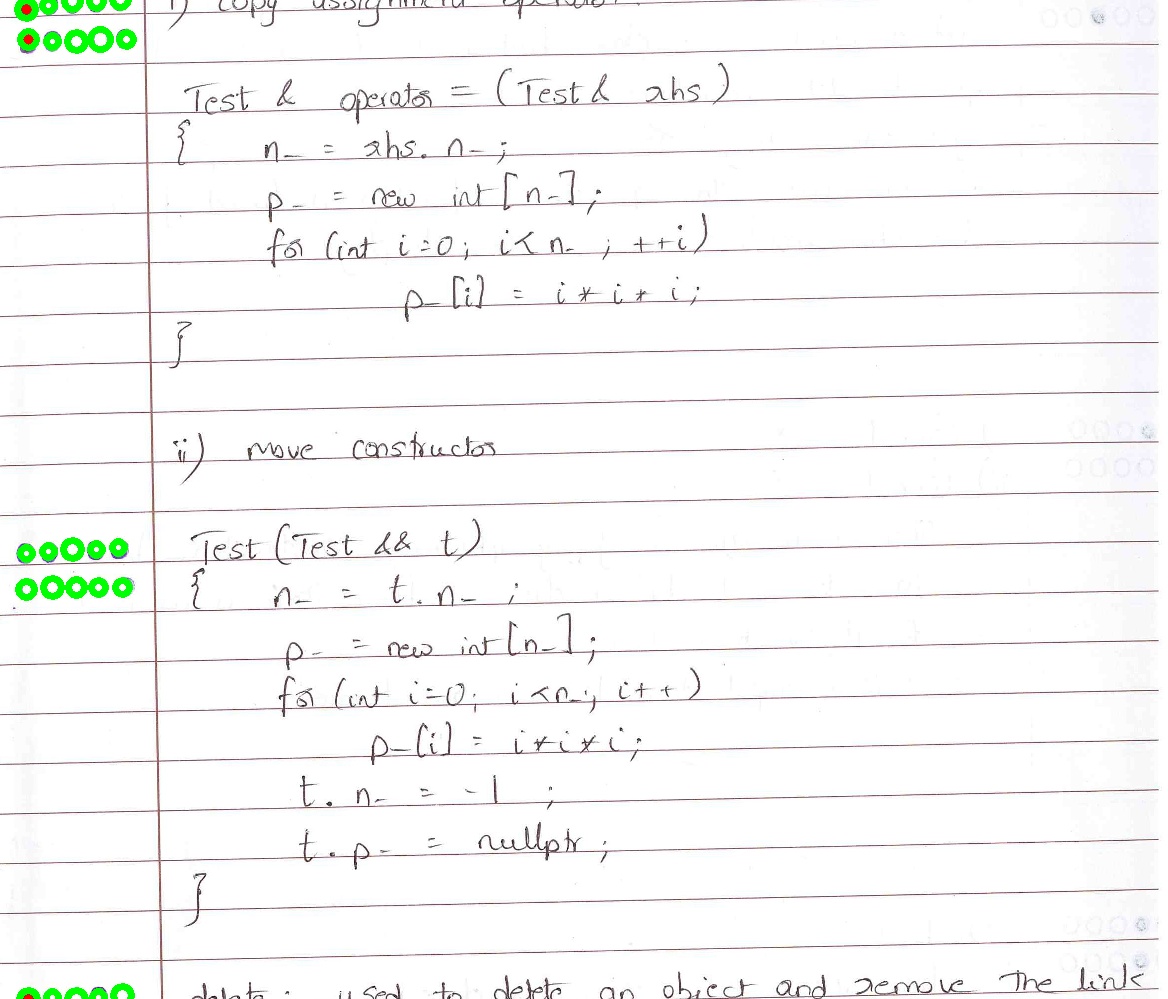 i) copy assignment operator.
Test & operator = (Test & rhs)
{ n_ = rhs. n_ ;
p_ = new int [n_] ;
for (int i=0; i< n_ ; ++i)
p_[i] = i * i * i;
}
ii) move constructor
Test (Test && t)
{ n_ = t. n_ ;
p_ = new int [n_] ;
for (int i=0; i<n_; i++)
p_[i] = i*i*i;
t. n_ = -1 ;
t. p_ = nullptr ;
}
delete : used to delete an object and remove the link